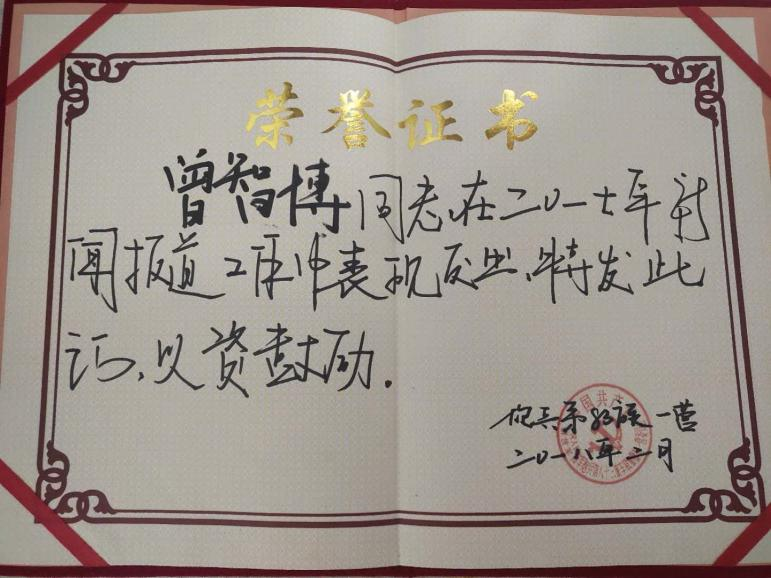 荣誉证书
曾智博同志,在二〇一七年新
闻报道工作中表现突出,特发此
证,以资鼓励.
炮兵第82旅一营
二〇一八年二月
国共产